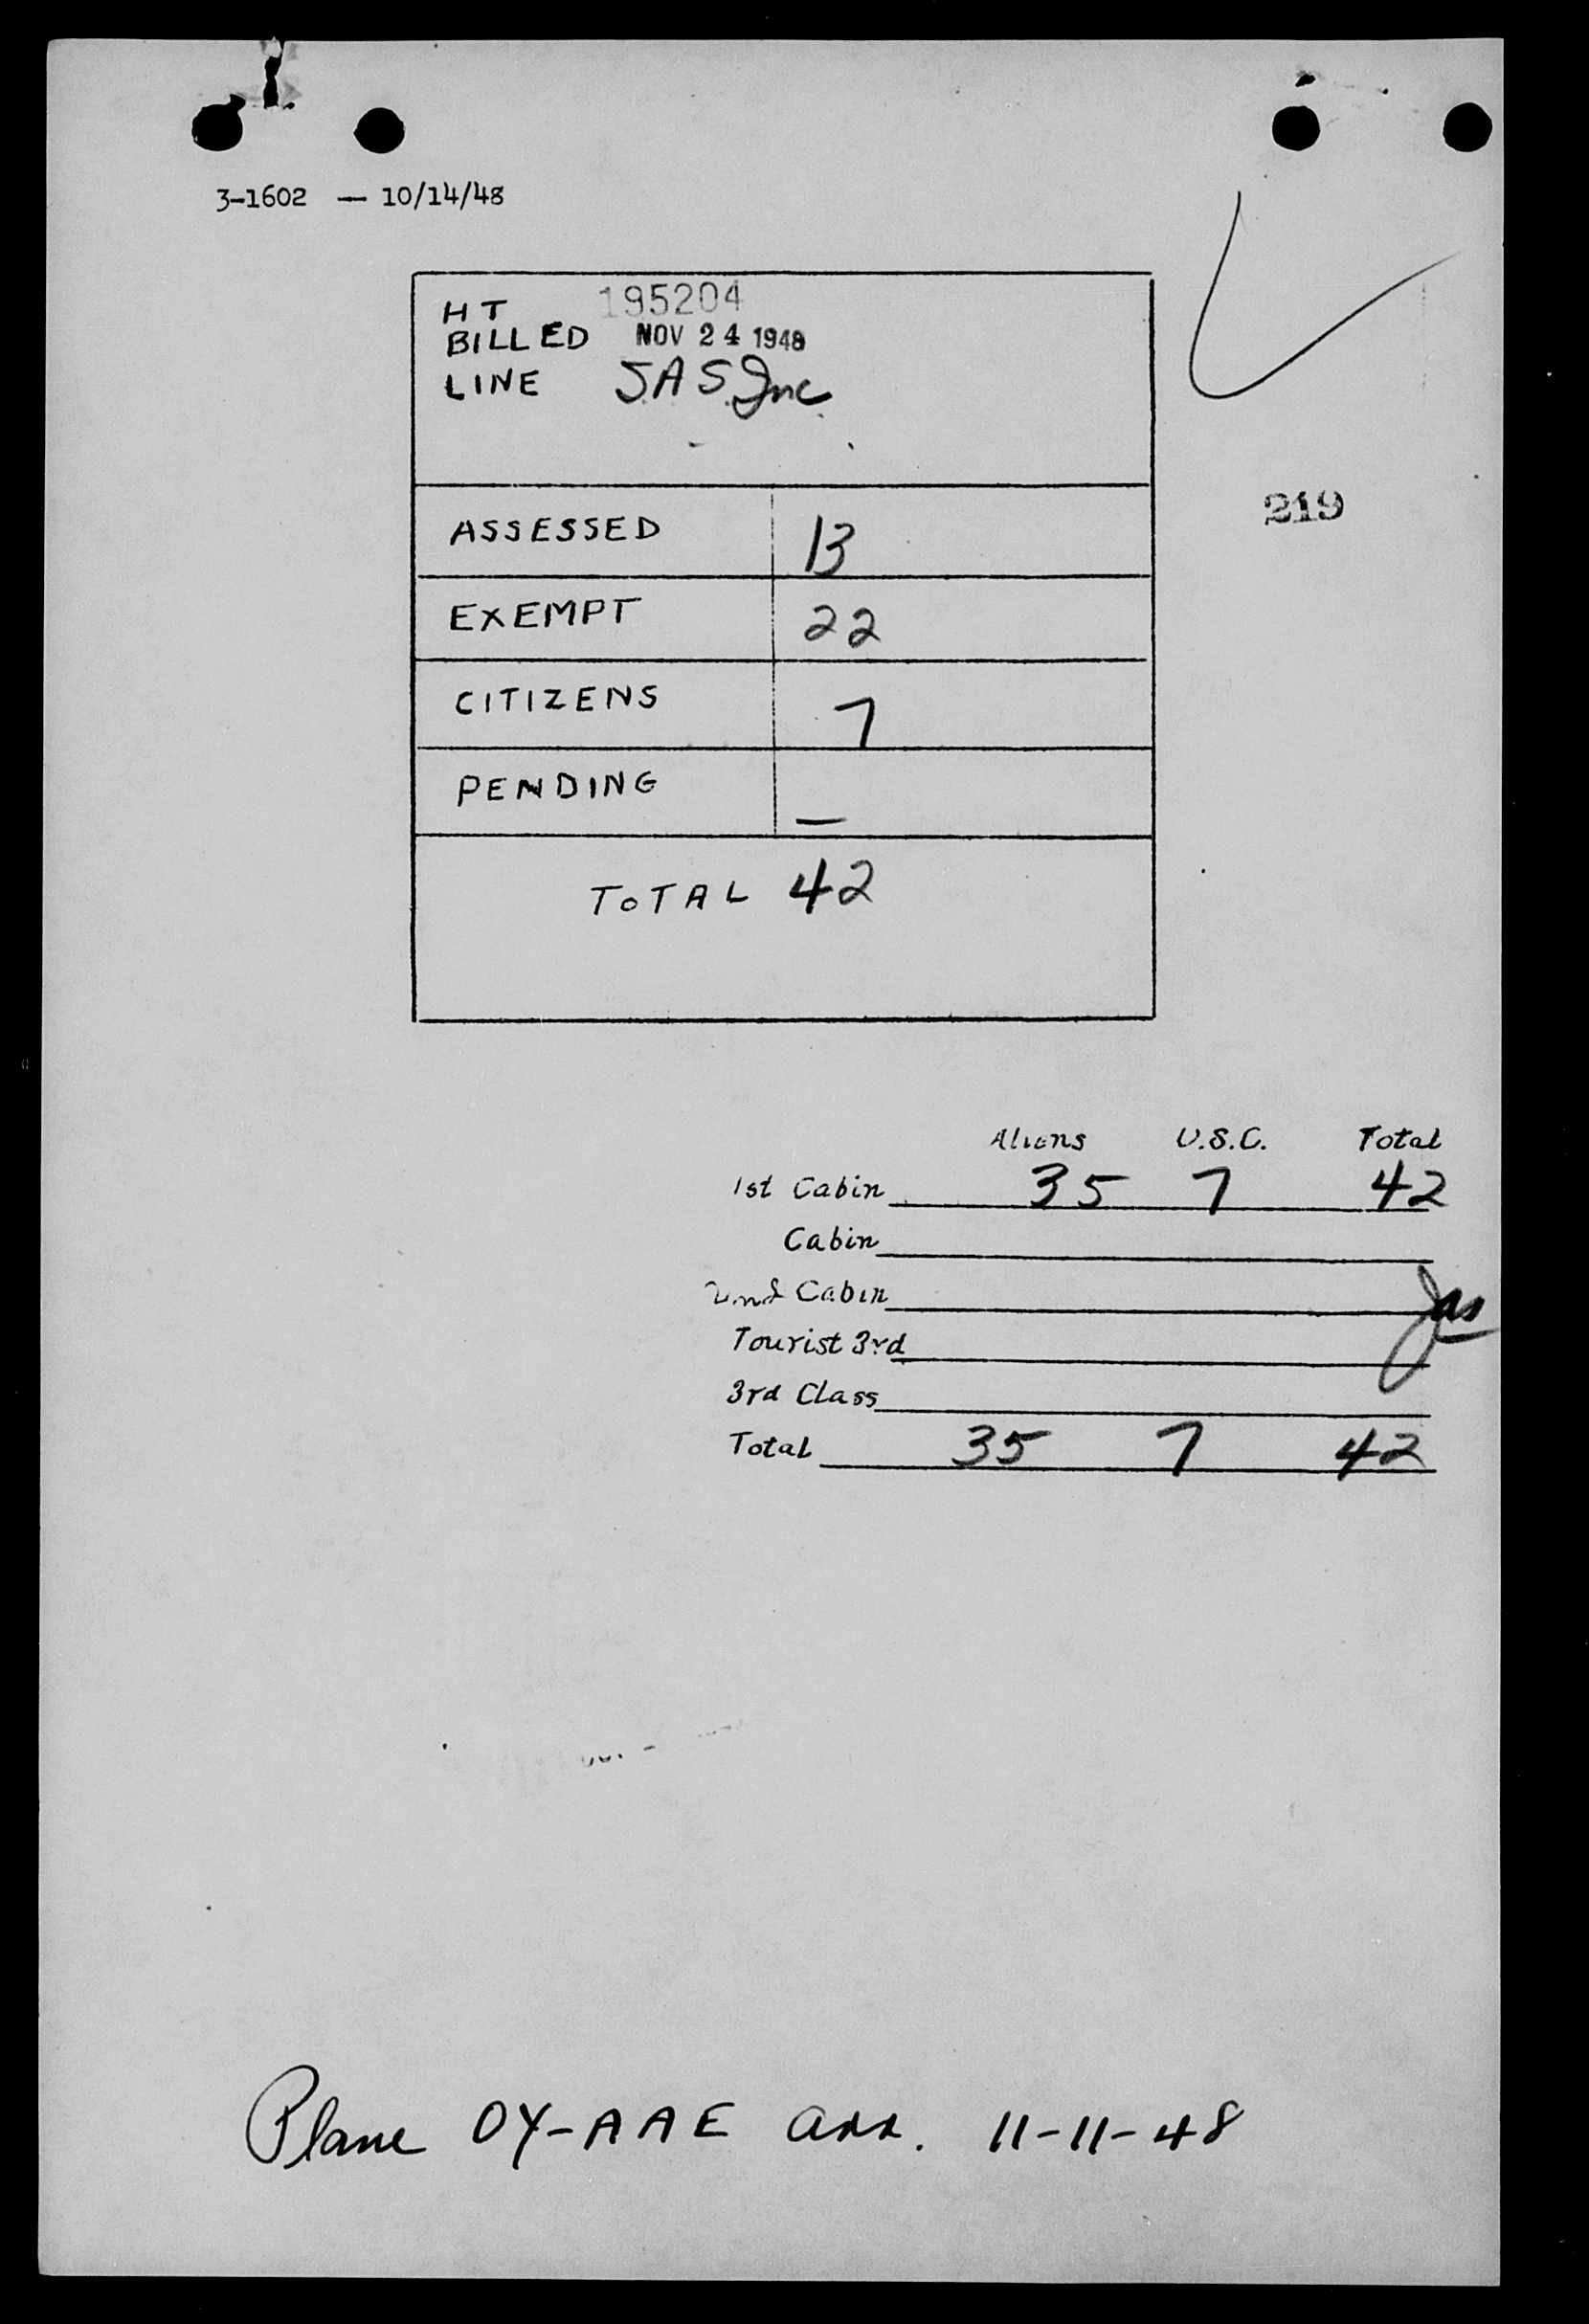 3-1602 — 10/14/48
HT 195204
BILLED NOV 24 1948
LINE S.A.S. Inc.
219
ASSESSED 13
EXEMPT 22
CITIZENS 7
PENDING —
TOTAL 42
Aliens U.S.C. Total
1st Cabin 35 7 42
Cabin
2nd Cabin
Tourist 3rd
3rd Class
Total 35 7 42
Plane OY-AAE arr. 11-11-48